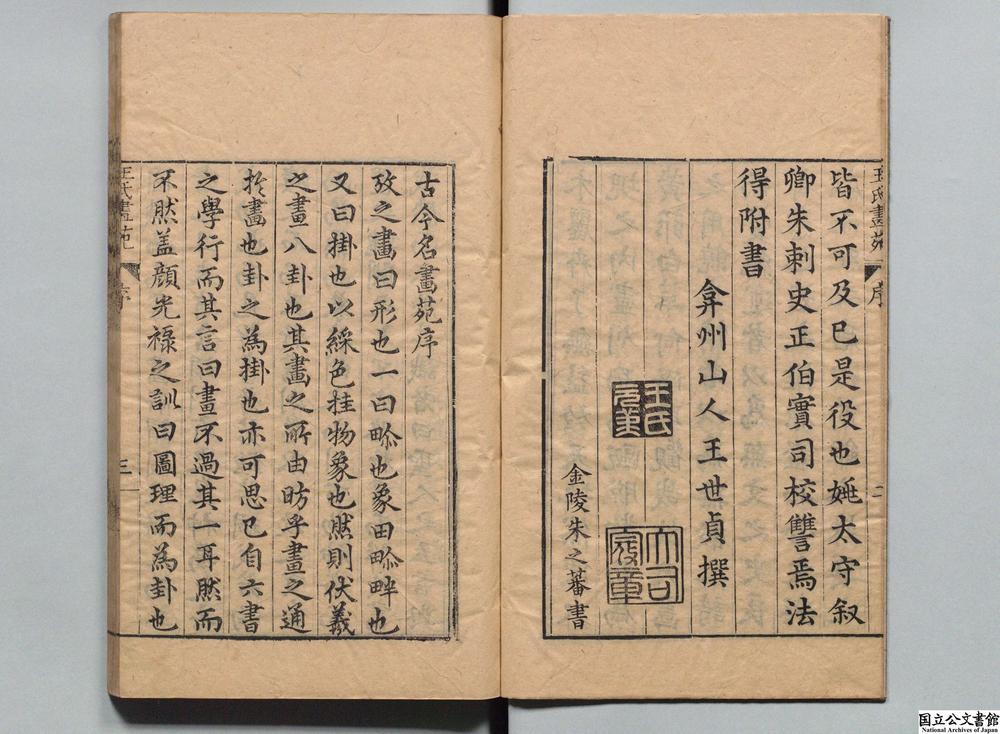 王氏畫苑 序 二
皆不可及已是役也姚太守叙
卿朱刺史正伯實司校讐焉法
得附書
弇州山人王世貞撰
王氏元美
大司寇章
金陵朱之蕃書
古今名畫苑序
攷之畫曰形也一曰畛也象田畛畔也
又曰掛也以綵色挂物象也然則伏羲
之畫八卦也其畫之所由昉乎畫之通
於畫也卦之為掛也亦可思已自六書
之學行而其言曰畫不過其一耳然而
不然盖顏光祿之訓曰圖理而為卦也
王氏畫苑 序 三
国立公文書館
National Archives of Japan